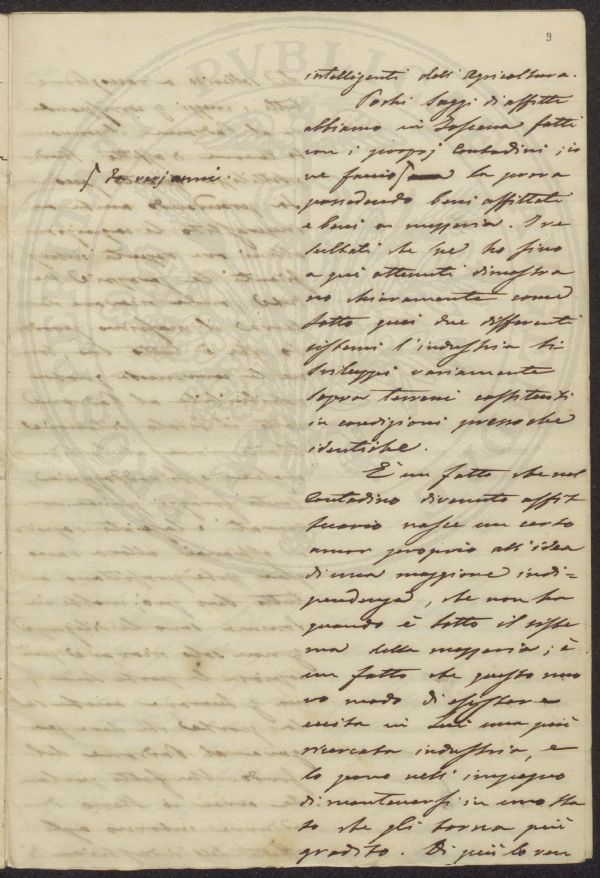 9
intelligenti dell'Agricoltura.
Pochi saggi di affitti
abbiamo in Toscana fatti
con i proprj Contadini; io
ne faccio ∫ la prova
∫ da varj anni
possedendo beni affittati
e beni a mezzeria. I re
sultati che ne ho fino
a qui ottenuti dimostra
no chiaramente come
sotto quei due differenti
sistemi l'industria si
sviluppi variamente
sopra terreni costituiti
in condizioni pressoche
identiche.
È un fatto che nel
Contadino divenuto affit
tuario nasce un certo
amor proprio all'idea
di una maggiore indi=
pendenza, che non ha
quando è sotto il siste
ma della mezzeria; è
un fatto che questo nuo
vo modo di esistere
eccita in Lui una più
ricercata industria, e
lo pone nell'impegno
di mantenersi in uno sta
to che gli torna più
gradito. Di più lo ren